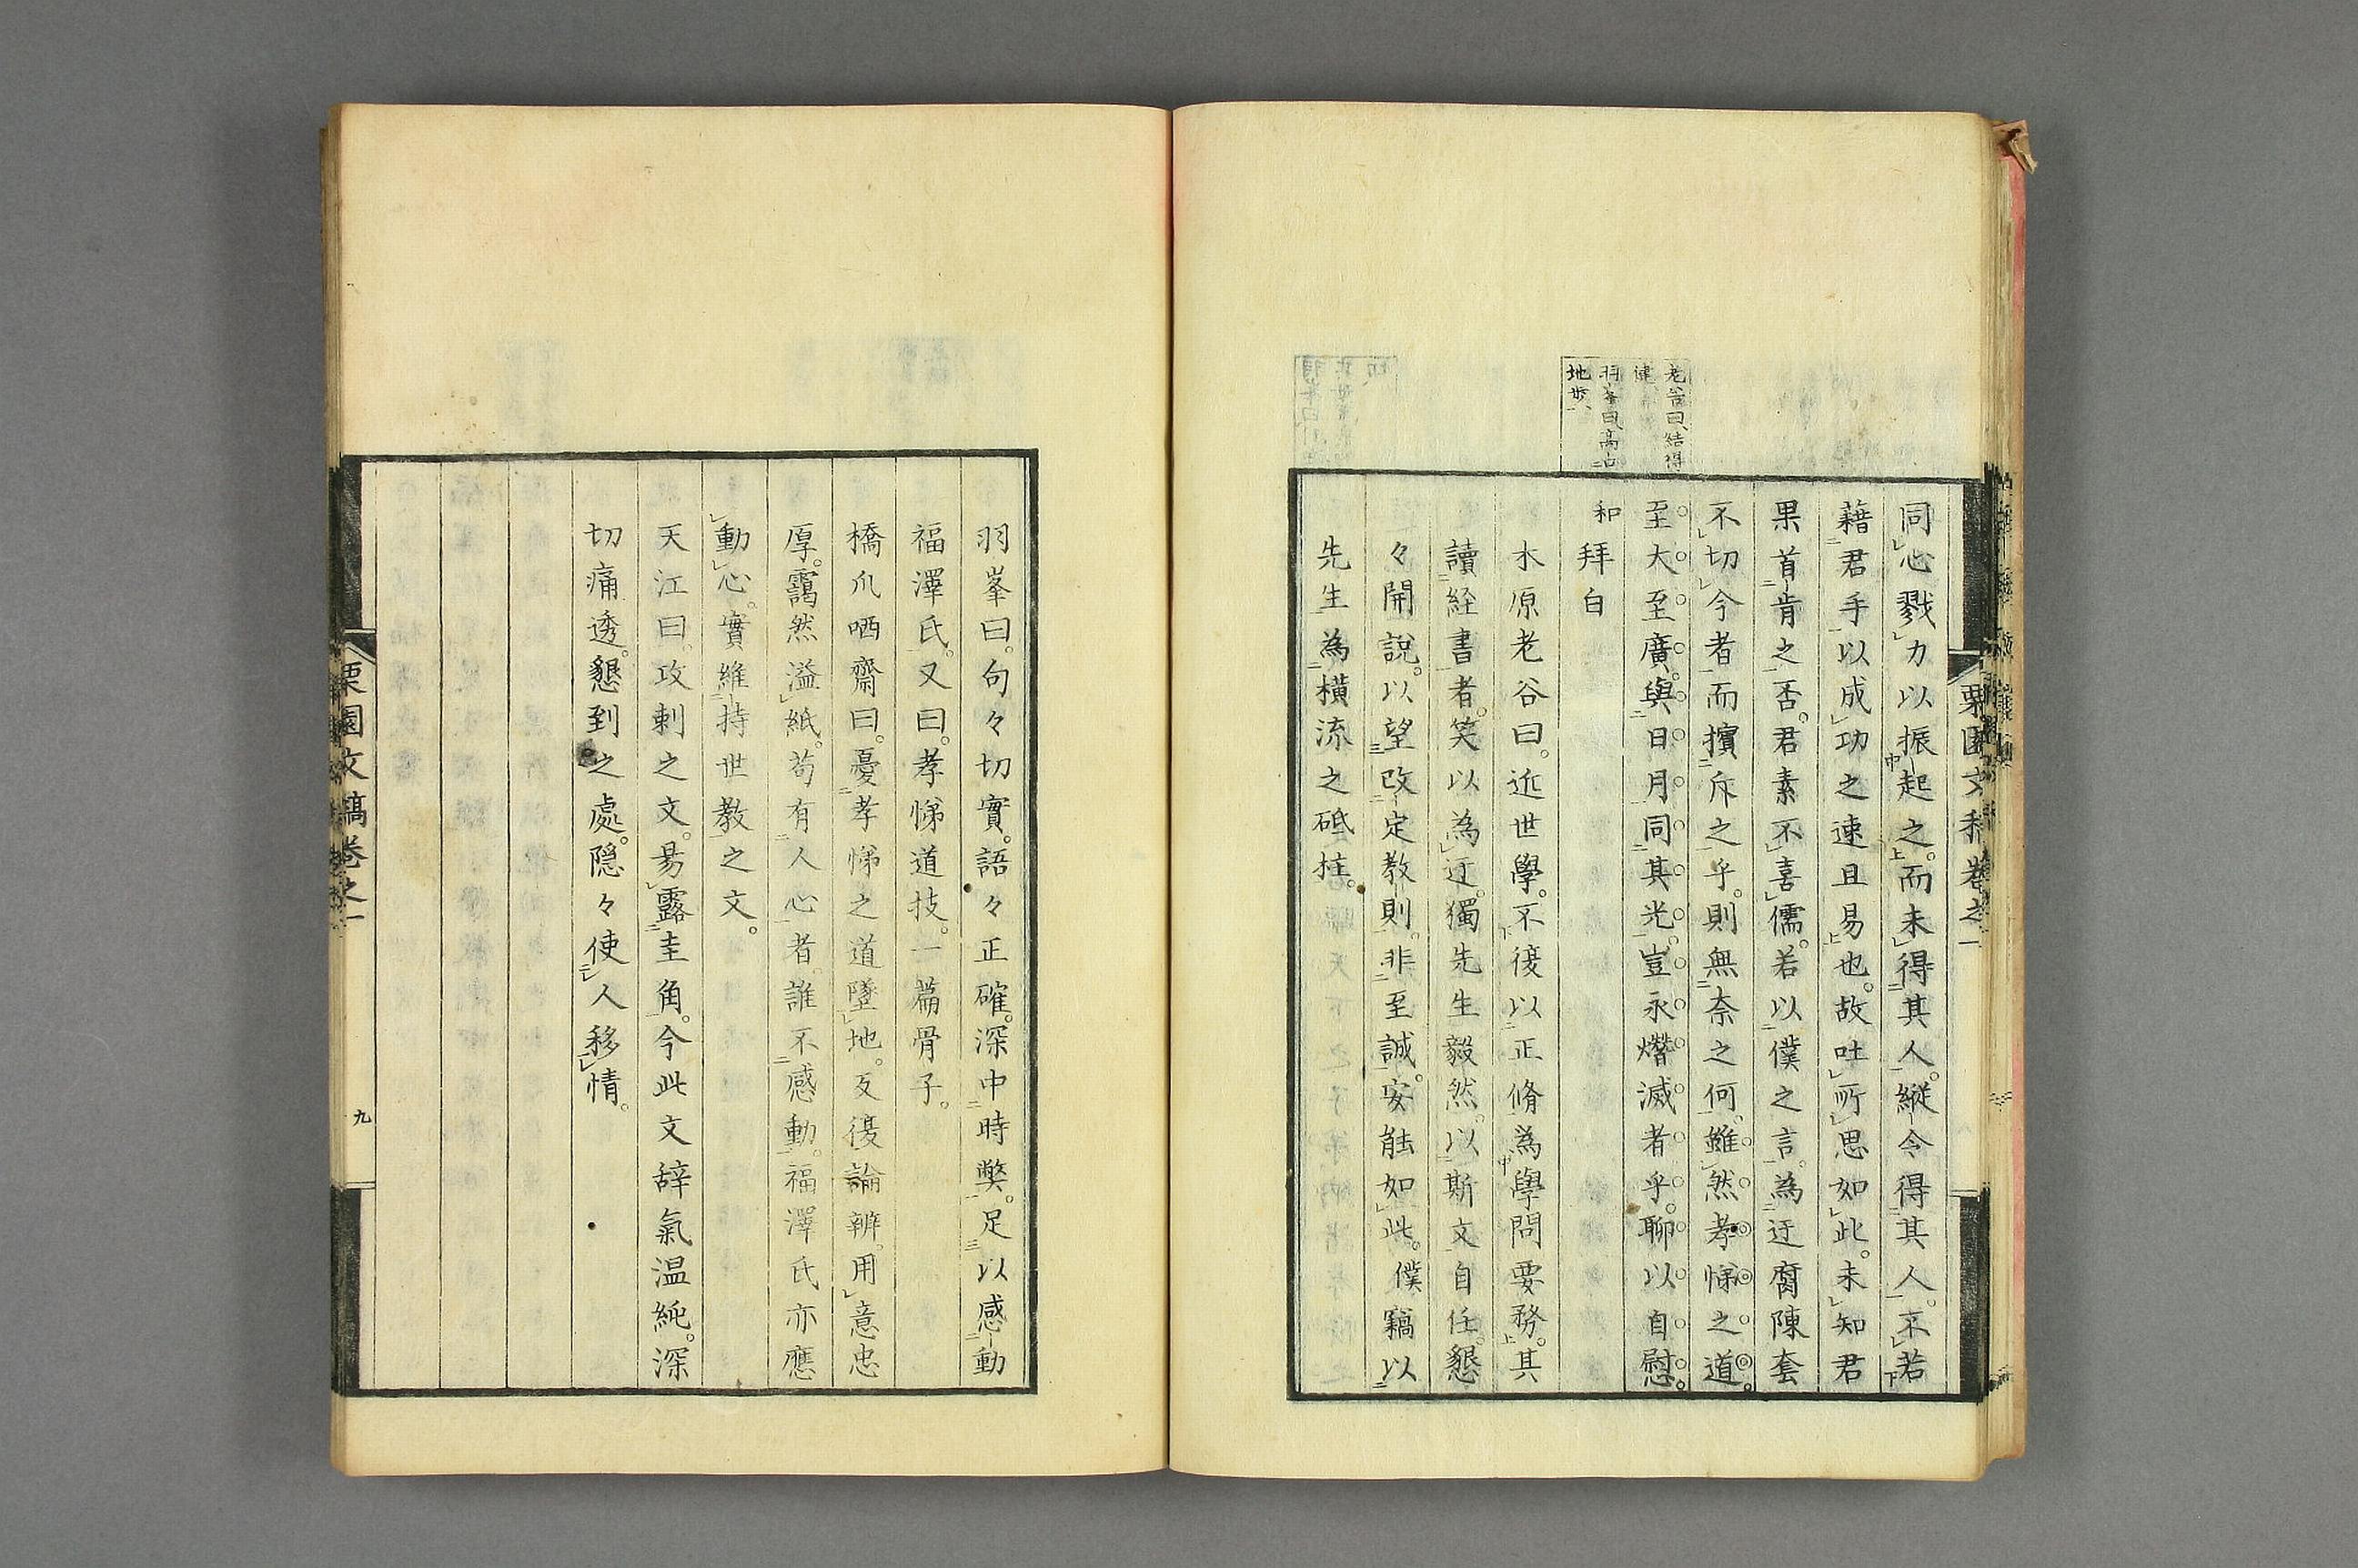 同心戮力以振起之。而未得其人。縦令得其人。不若
藉君手以成功之速且易也。故吐所思如此。未知君
果首肯之否。君素不喜儒。若以僕之言。為迂腐陳套
不切今者而擯斥之乎。則無奈之何。雖然孝悌之道。
至大至廣。與日月同其光。豈永熸滅者乎。聊以自慰。
和拜白
水原老谷曰。近世學。不復以正脩為學問要務。其
讀経書者。笑以為迂。獨先生毅然。以斯文自任。懇
々開說。以望改定教則。非至誠。安能如此。僕竊以
先生為橫流之砥柱。
老谷曰、結得
健、
羽峯曰、高占
地步、
栗園文稿卷之一
羽峯曰。句々切實。語々正確。深中時弊。足以感動
福澤氏。又曰。孝悌道技。一篇骨子。
橋爪哂齋曰。憂孝悌之道墜地。反復論辨。用意忠
厚。靄然溢紙。苟有人心者。誰不感動。福澤氏亦應
動心。實維持世教之文。
天江曰。攻刺之文。易露圭角。今此文辞氣温純。深
切痛透。懇到之處。隠々使人移情。
栗園文稿卷之一
九